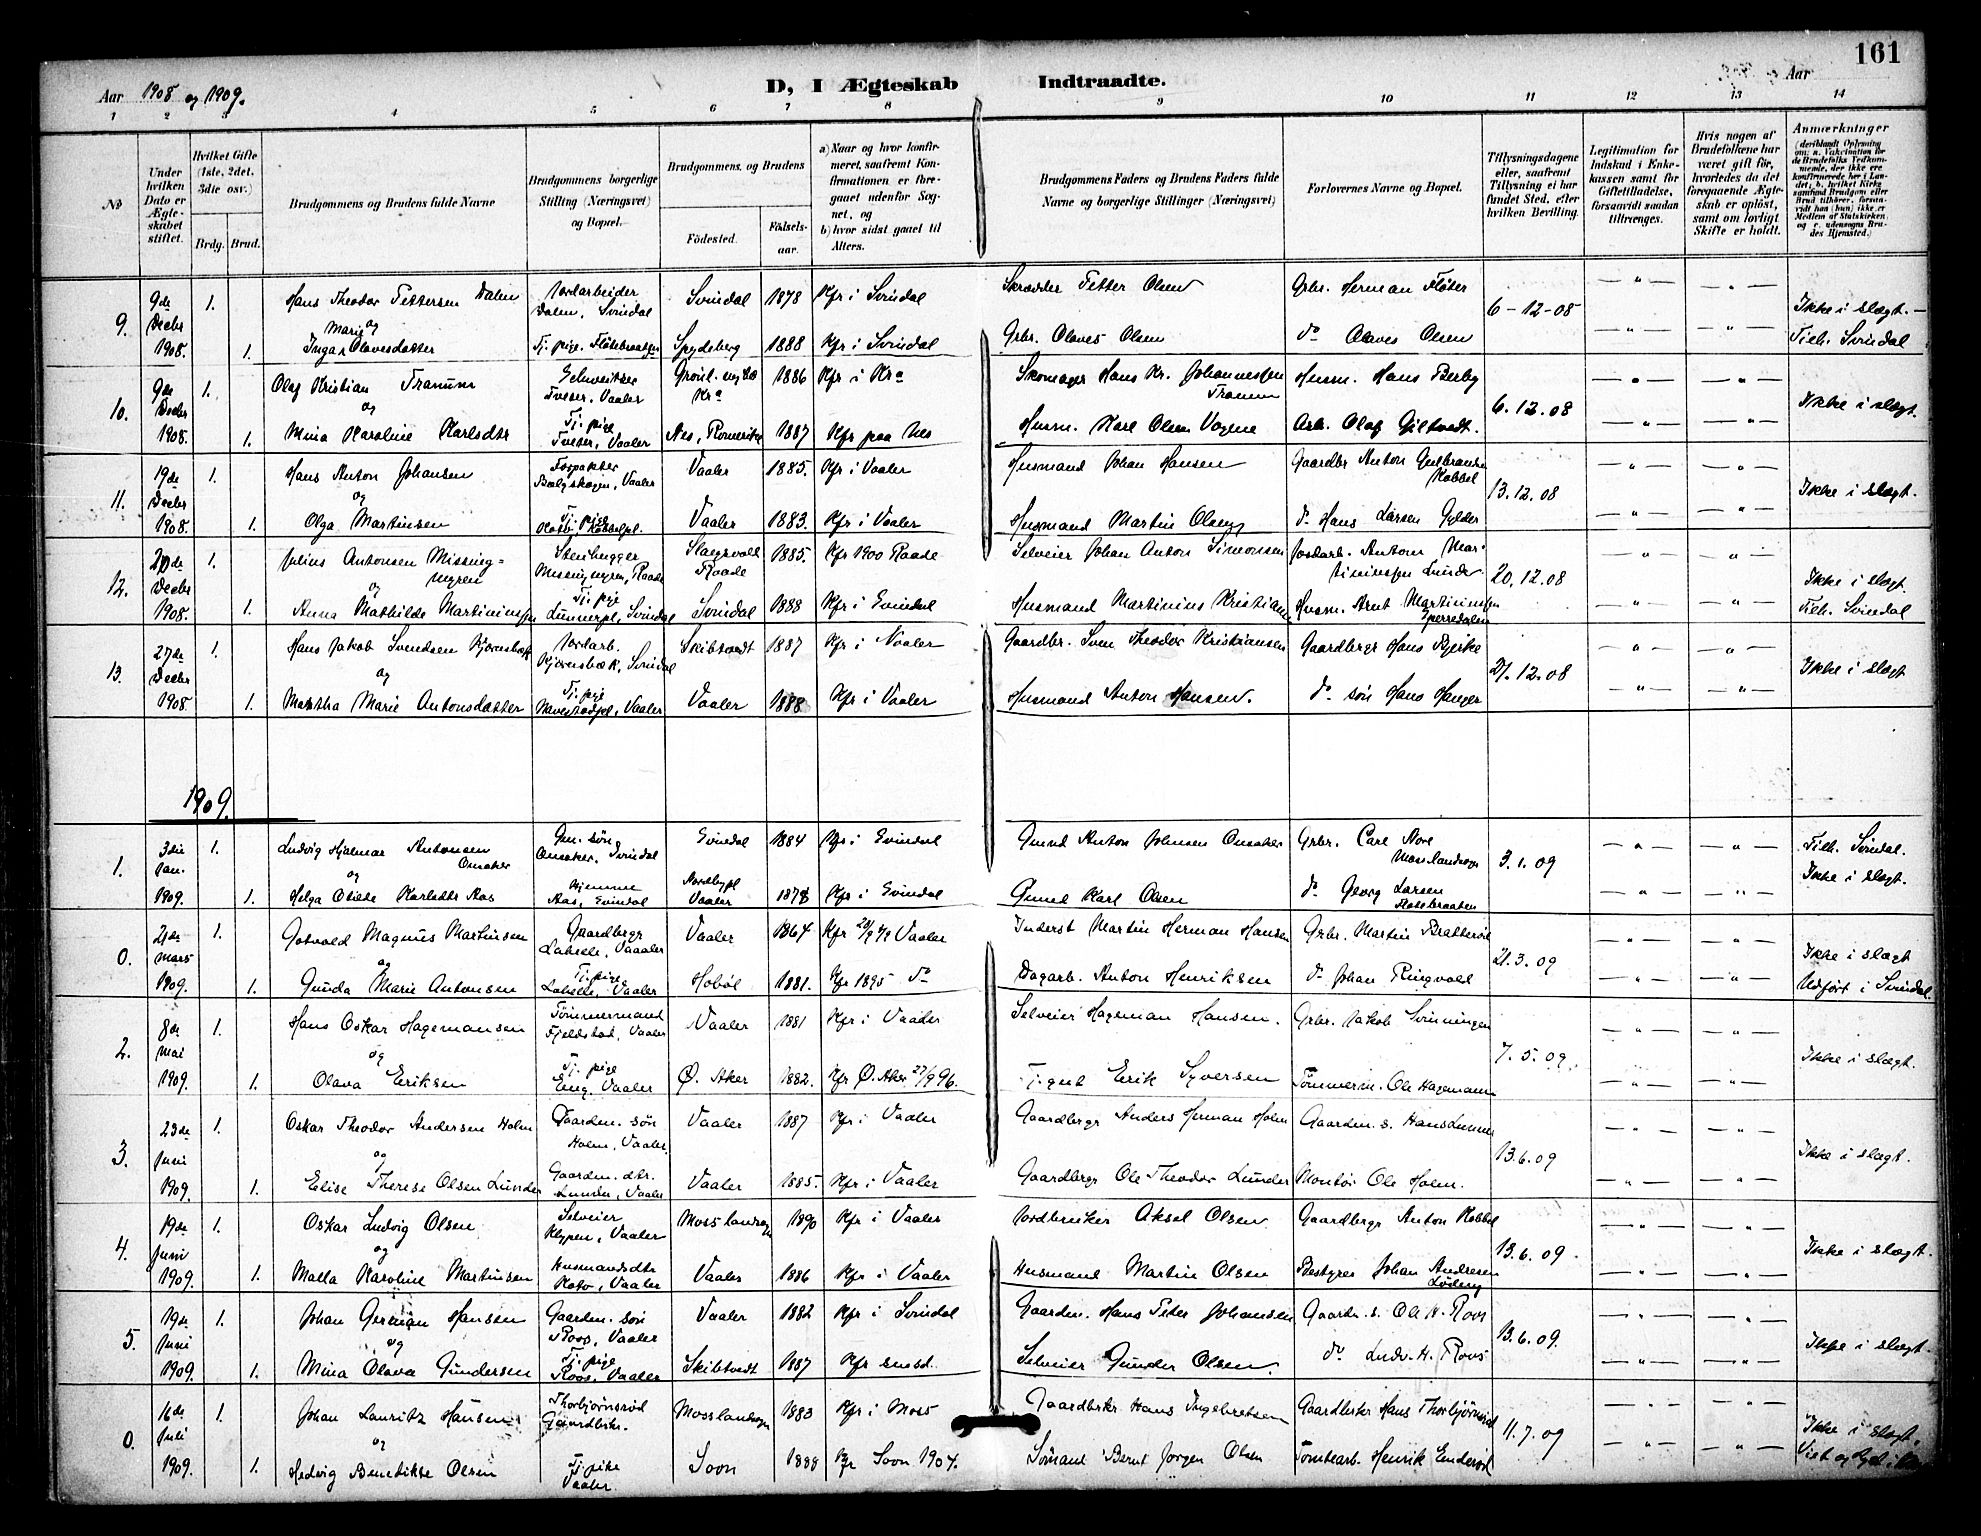 161
Aar 1908 og 1909.
D, I Ægteskab Indtraadte.
Aar
1 2 3 4 5 6 7 8 9 10 11 12 13 14
No
Under hvilken Dato er Ægteskabet stiftet.
Hvilket Gifte (1ste, 2det, 3die osv.)
Brdg. Brud.
Brudgommens og Brudens fulde Navne
Brudgommens borgerlige Stilling (Næringsvei) og Bopæl.
Brudgommens, og Brudens
Födested. Fölselsaar.
a) Naar og hvor konfirmeret, saafremt Konfirmationen er foregaaet udenfor Sognet, og
b) hvor sidst gaaet til Alters.
Brudgommens Faders og Brudens Faders fulde Navne og borgerlige Stillinger (Næringsvei)
Forlovernes Navne og Bopæl.
Tillysningsdagene eller, saafremt Tillysning ei har fundet Sted, efter hvilken Bevilling.
Legitimation for Indskud i Enkekassen samt for Giftetilladelse, forsaavidt saadan tiltrænges.
Hvis nogen af Brudefolkene har været gift før, hvorledes da det foregaaende Ægteskab er opløst, samt om lovligt Skifte er holdt.
Anmerkninger
(deriblandt Oplysning om: a. Vakcination for de Brudefolks Vedkommende, der ikke ere konfirmerede her i Landet; b. hvilket Kirkesamfund Brudgom eller Brud tilhører, forsaavidt han (hun) ikke er Medlem af Statskirken, og c. udensogns Brudes Hjemsted.)
9. 9de Decbr 1908. 1. Hans Theodor Pettersen Dalen Jordarbeider Dalen, Svindal Svindal 1878 Kfr i Svindal Skrædder Petter Olsen Grbr. Herman Fløter 6-12-08 Ikke i slægt.
og
1. Inga Marie Olavesdatter Tj. pige. Fløtebraaten Spydeberg 1888 Kfr i Svindal Grbr. Olaves Olsen do Olaves Olsen Tilh. Svindal
10. 9de Decbr 1908. 1. Olaf Kristian Tranum Schweitser Tveter, Vaaler Kra 1886 Kfr i Kra Skomager Hans Kr. Johannessen Tranum Husm. Hans Berby 6.12.08 Ikke i slægt.
og
1. Mina Karoline Karlsdtr Tj. pige Tveter, Vaaler Nes, Romerike 1887 Kfr paa Nes Husm. Karl Olsen Arb. Olaf Giltvedt.
11. 19de Decbr 1908. 1. Hans Anton Johansen Forpakter Vaaler Vaaler 1885. Kfr i Vaaler Husmand Johan Hansen Gaardbr Anton Gulbrandsen Kobbel 13.12.08 Ikke i slægt.
og
1. Olga Martinsen Tj. pige Vaaler 1883. Kfr i Vaaler Husmand Martin Olsen do Hans Larsen Gylder
12. 20de Decbr 1908. 1. Julius Antonsen Missingmyren Stenhugger Missingmyren, Raade Slangsvold Raade 1885. Kfr 1900 Raade Selveier Johan Anton Simonsen Jordarb. Antom Martiniussen Lunder 20.12.08 Ikke i slægt.
og
1. Anna Mathilde Martiniussen Tj. pige Lunnerpl, Svindal Svindal 1888 Kfr i Svindal Husmand Martinius Kristian Husm. Arnt Martiniussen Sperredalen Tilh. Svindal
13. 27de Decbr 1908 1. Hans Jakob Svendsen Kjærnsbæk Jordarb. Kjærnsbæk, Svindal Skibtvedt 1887 Kfr i Vaaler Gaardbr. Sven Theodor Kristiansen Gaardbrgr Hans Kjirke 21.12.08 Ikke i slægt
og
1. Martha Marie Antonsdatter Tj. pige Navestadpl., Vaaler Vaaler 1888 Kfr i Vaaler Husmand Anton Hansen. do søn Hans Hanger
1909.
1. 3die Jan. 1909. 1. Ludvig Hjalmar Antonsen Omaker Gm. søn Omaker, Svindal Svindal 1884 Kfr i Svindal Gmnd Anton Johnsen Omaker Grbr. Carl Nore Moss landsogn 3.1.09 Tilh. Svindal.
og
1. Helga Otilde Karlsdtr Aas hjemme Aas, Svindal Nordbypl Vaaler 1878 Kfr i Svindal Gmnd Karl Olsen do Georg Larsen Fløtebraaten Ikke i slægt.
0. 21de Mars 1909. 1. Gotvold Magnus Martinsen Gaardbrgr Vaaler Vaaler 1864 Kfr Vaaler Inderst Martin Herman Hansen Grbr. Martin Bratterød 21.3.09 Ikke i slægt
og
1. Gunda Marie Antonsen Tj. pige Vaaler Hobøl 1881. Kfr 1895 do Dagarb. Anton Henriksen do Johan Ringvold Udført i Svindal.
2. 8de Mai 1909. 1. Hans Oskar Hagemansen Tømmermand Fjeldstad, Vaaler Vaaler 1881 Kfr i Vaaler Selveier Hageman Hansen. Grbr. Jakob Svinningen 7.5.09. Ikke i slægt.
og
1. Olava Eriksen Tj. pige Eng, Vaaler Ø. Aker 1882. Kfr Ø. Aker 27/9 96. Tj. gut Erik Syversen Tømmerm. Ole Hagemann
3. 23de Juni 1909. 1. Oskar Theodor Andersen Holm Gaardm. søn Holm, Vaaler Vaaler 1887 Kfr i Vaaler Gaardbrgr Anders Herman Holm Gaardm. s. Hans Lunner 13.6.09 Ikke i slægt.
og
1. Elise Therese Olsen Lunder Gaardm. dtr. Lunder, Vaaler Vaaler 1885. Kfr i Vaaler Gaardbrgr Ole Theodor Lunder Montør Ole Holm.
4. 19de Juni 1909. 1. Oskar Ludvig Olsen Selveier Klypen, Vaaler Moss landsogn 1890 Kfr i Vaaler Jordbruker Aksel Olsen Gaardbrgr Anton Kobbel 13.6.09. Ikke i slægt.
og
1. Malla Karoline Martinsen Husmandsdtr Vaaler Vaaler 1886 Kfr i Vaaler Husmand Martin Olsen Bestyrer Johan Andresen
5. 19de Juni 1909. 1. Johan German Hansen Gaardm. søn Roos, Vaaler Vaaler 1882 Kfr i Svindal Gaardm. Hans Peter Johansen Gaardm. s. Ole H. Roos 13.6.09. Ikke i slægt.
og
1. Mina Olava Gundersen Tj. pige Roos, Vaaler Skibtvedt 1887 Kfr smsd. Selveier Gunder Olsen. do Ludv. H. Roos
0. 16de Juli 1909. 1. Johan Lauritz Hansen Thorbjørnsrød Gaardbrkr. Moss landsogn 1883 Kfr i Moss Gaardbrkr Hans Ingebretsen Gaardbrker Hans Thorbjørnsrød 11.7.09 Ikke i slægt.
og
1. Hedvig Benedikte Olsen Tj. pike Vaaler Soon 1888 Kfr Soon 1904. Sømand Bernt Jørgen Olsen Tomtearb. Henrik Enderød